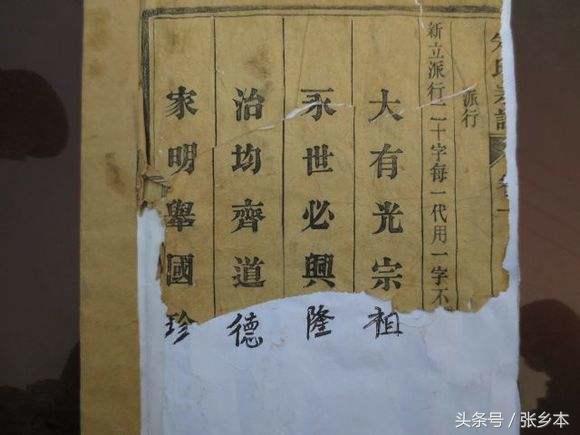 派行
新立派行二十字每一代用一字不
大有光宗祖
永世必興隆
治均齊道德
家明舉國珍
头条号 / 张乡本